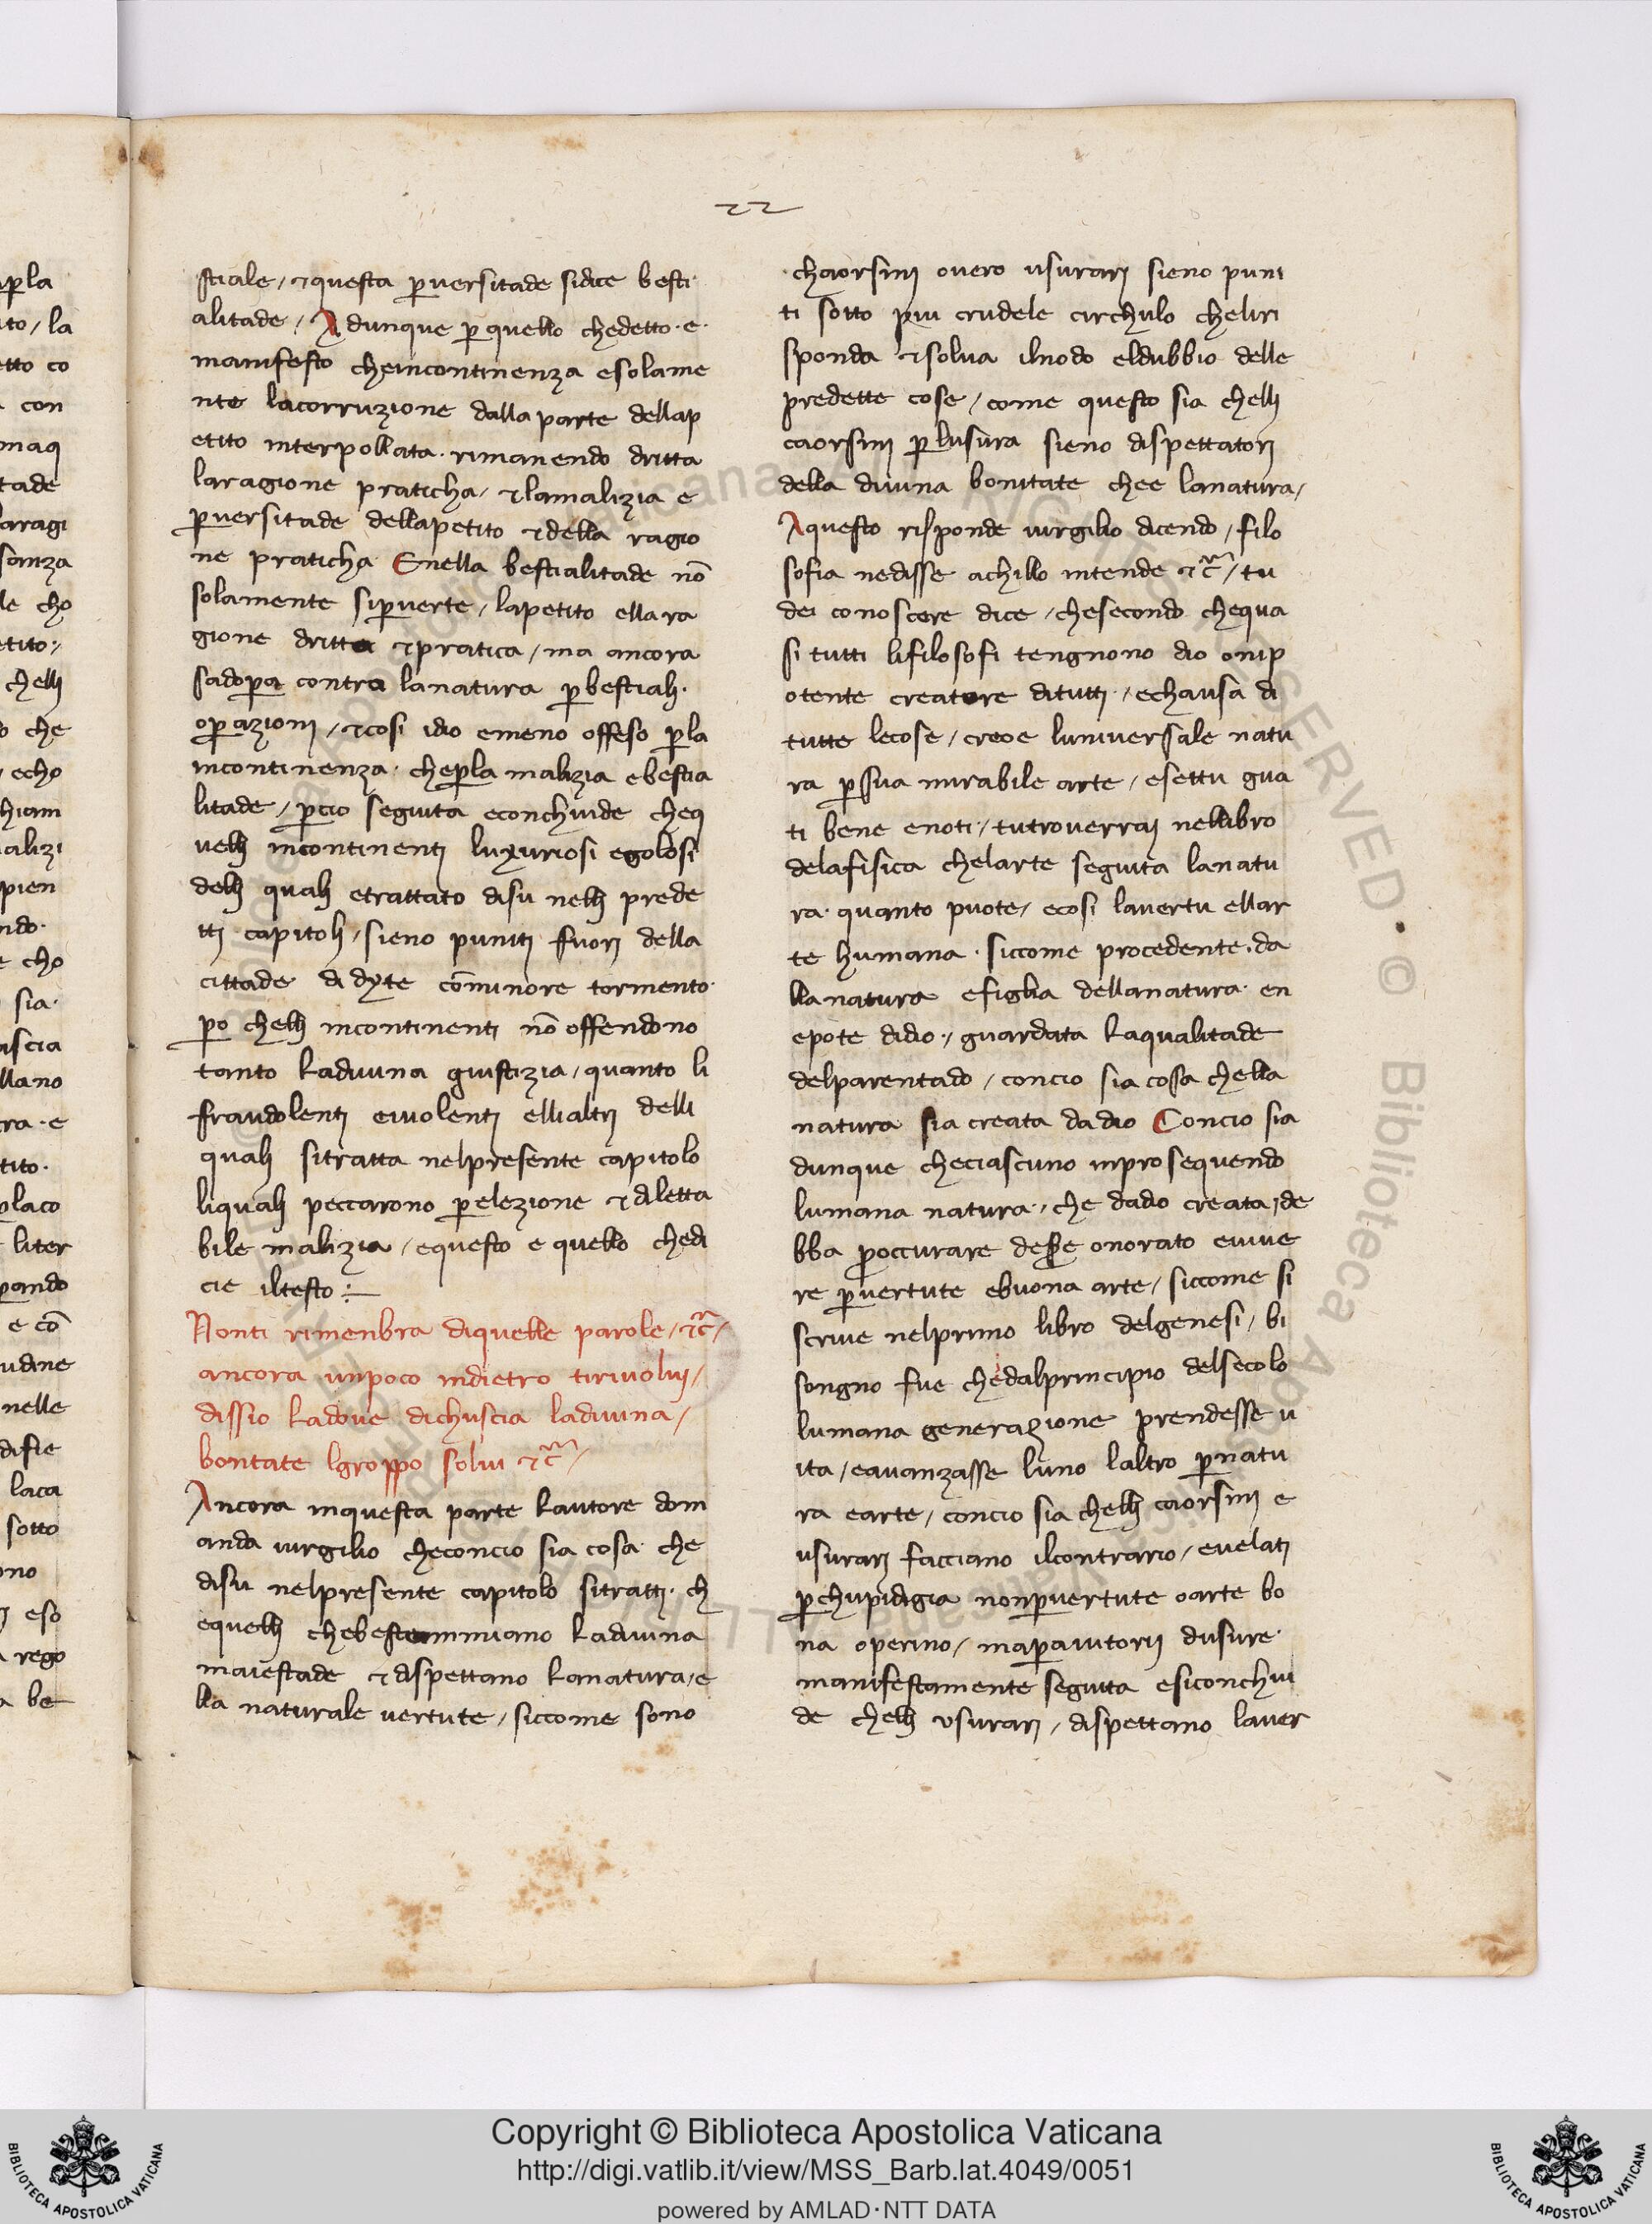 apla
to / la
etto co
con
maq
tade
aragi
sanza
le cho
etito
chelli
o che
/ echo
hiam
alizi
pien
ndo.
e cho
sia.
ascia
llano
ra . e
tito.
placo
liter
pando
e cō
udine
nelle
difie
laca
sotto
ono
eso
rego
a be
22
stiale / ⁊questa p̲versitade sidice besti
alitade / Adunque p̲ quello chedetto . e .
manifesto cheincontinenza esolame
nte lacorruzione dalla parte dellap
etito interpollata . rimanendo dritta
laragione praticha / ⁊lamalizia e
p̲versitade dellapetito ⁊della ragio
ne praticha Enella bestialitade nō
solamente sip̲verte / lapetito ellara
gione dritta ⁊pratica / ma ancora
sadop̲a contra lanatura p̲ bestiali .
op̲azionj / ⁊cosi idio emeno offeso p̲la
incontinenza . chep̲la malizia ebestia
litade / p̲cio seguita econchiude cheq
uelli incontinentj luxuriosi egolosi
delli quali etrattato disu nelli prede
ttj capitoli / sieno punitj fuorj della
cittade di dyte cōminore tormento .
p̲o chelli incontinenti nō offendono
tanto ladiuina giustizia / quanto li
fraudolentj eiuolentj ellialtrj delli
quali sitratta nelpresente capitolo
liquali peccarono p̲elezione ⁊diletta
bile malizia / equesto e quello chedi
cie iltesto :
Nonti rimenbra diquelle parole / ⁊c̄ /
ancora unpoco indietro tiriuoluj /
dissio ladoue dichuscia ladiuina /
bontate lgroppo solui ⁊c̄ /
Ancora inquesta parte lautore dom
anda uirgilio checoncio sia cosa che
disu nelpresente capitolo sitrattj . ch
equelli chebestemmiano ladiuina
maiestade ⁊dispettano lanatura / e
lla naturale uertute / siccome sono
chaorsinj ouero usurarj sieno puni
ti sotto piu crudele circhulo cheliri
sponda ⁊solua ilnodo eldubbio delle
predette cose / come questo sia chelli
caorsinj p̲ lusura sieno dispettatorj
della diuina bonitate chee lanatura /
Aquesto risponde uirgilio dicendo / filo
sofia nedisse achillo intende ⁊c̄ / tu
dei conoscere dice / chesecondo chequa
si tutti lifilosofi tengnono dio onip
otente creatore ditutti / echausa di
tutte lecose / creoe luniuersale natu
ra p̲ sua mirabile arte / esettu gua
ti bene enoti / tutrouerraj nellibro
delafisica chelarte seguita lanatu
ra . quanto puote / ecosi lauertu ellar
te humana . siccome procedente . da
llanatura efiglia dellanatura . en
epote didio / guardata laqualitade
delparentado / concio sia cosa chella
natura sia creata dadio Concio sia
dunque checiascuno inprosequendo
lumana natura / che dadio creata / de
bba p̲occurare desse onorato euiue
re p̲uertute ebuona arte / siccome si
scriue nelprimo libro delgenesi / bi
songno fue chedalprincipio delsecolo
lumana generazione prendesse u
ita / eauanzasse luno laltro p̲natu
ra earte / concio sia chelli caorsinj e
usurarj facciano ilcontrario / euelatj
p̲chupidigia nonp̲uertute oarte bo
na operino / map̲aiutorij dusure
manifestamente seguita esiconchiu
de chelli usurarj / dispettano lauer
RESERVED • © Biblioteca Apostolica Vaticana
Copyright © Biblioteca Apostolica Vaticana
http://digi.vatlib.it/view/MSS_Barb.lat.4049/0051
powered by AMLAD·NTT DATA
BIBLIOTECA APOSTOLICA VATICANA
BIBLIOTECA APOSTOLICA VATICANA